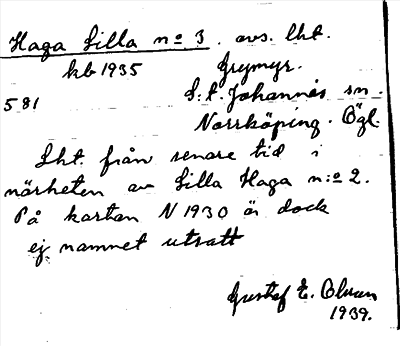 Haga Lilla n:o 3. avs. lht.
kb 1935 Grymyr.
581 S:t Johannes sn.
Norrköping. Ögl.
Lht. från senare tid i
närheten av Lilla Haga n:o 2.
På kartan N 1930 är dock
ej namnet utsatt
Gustaf E. Olsson
1939.